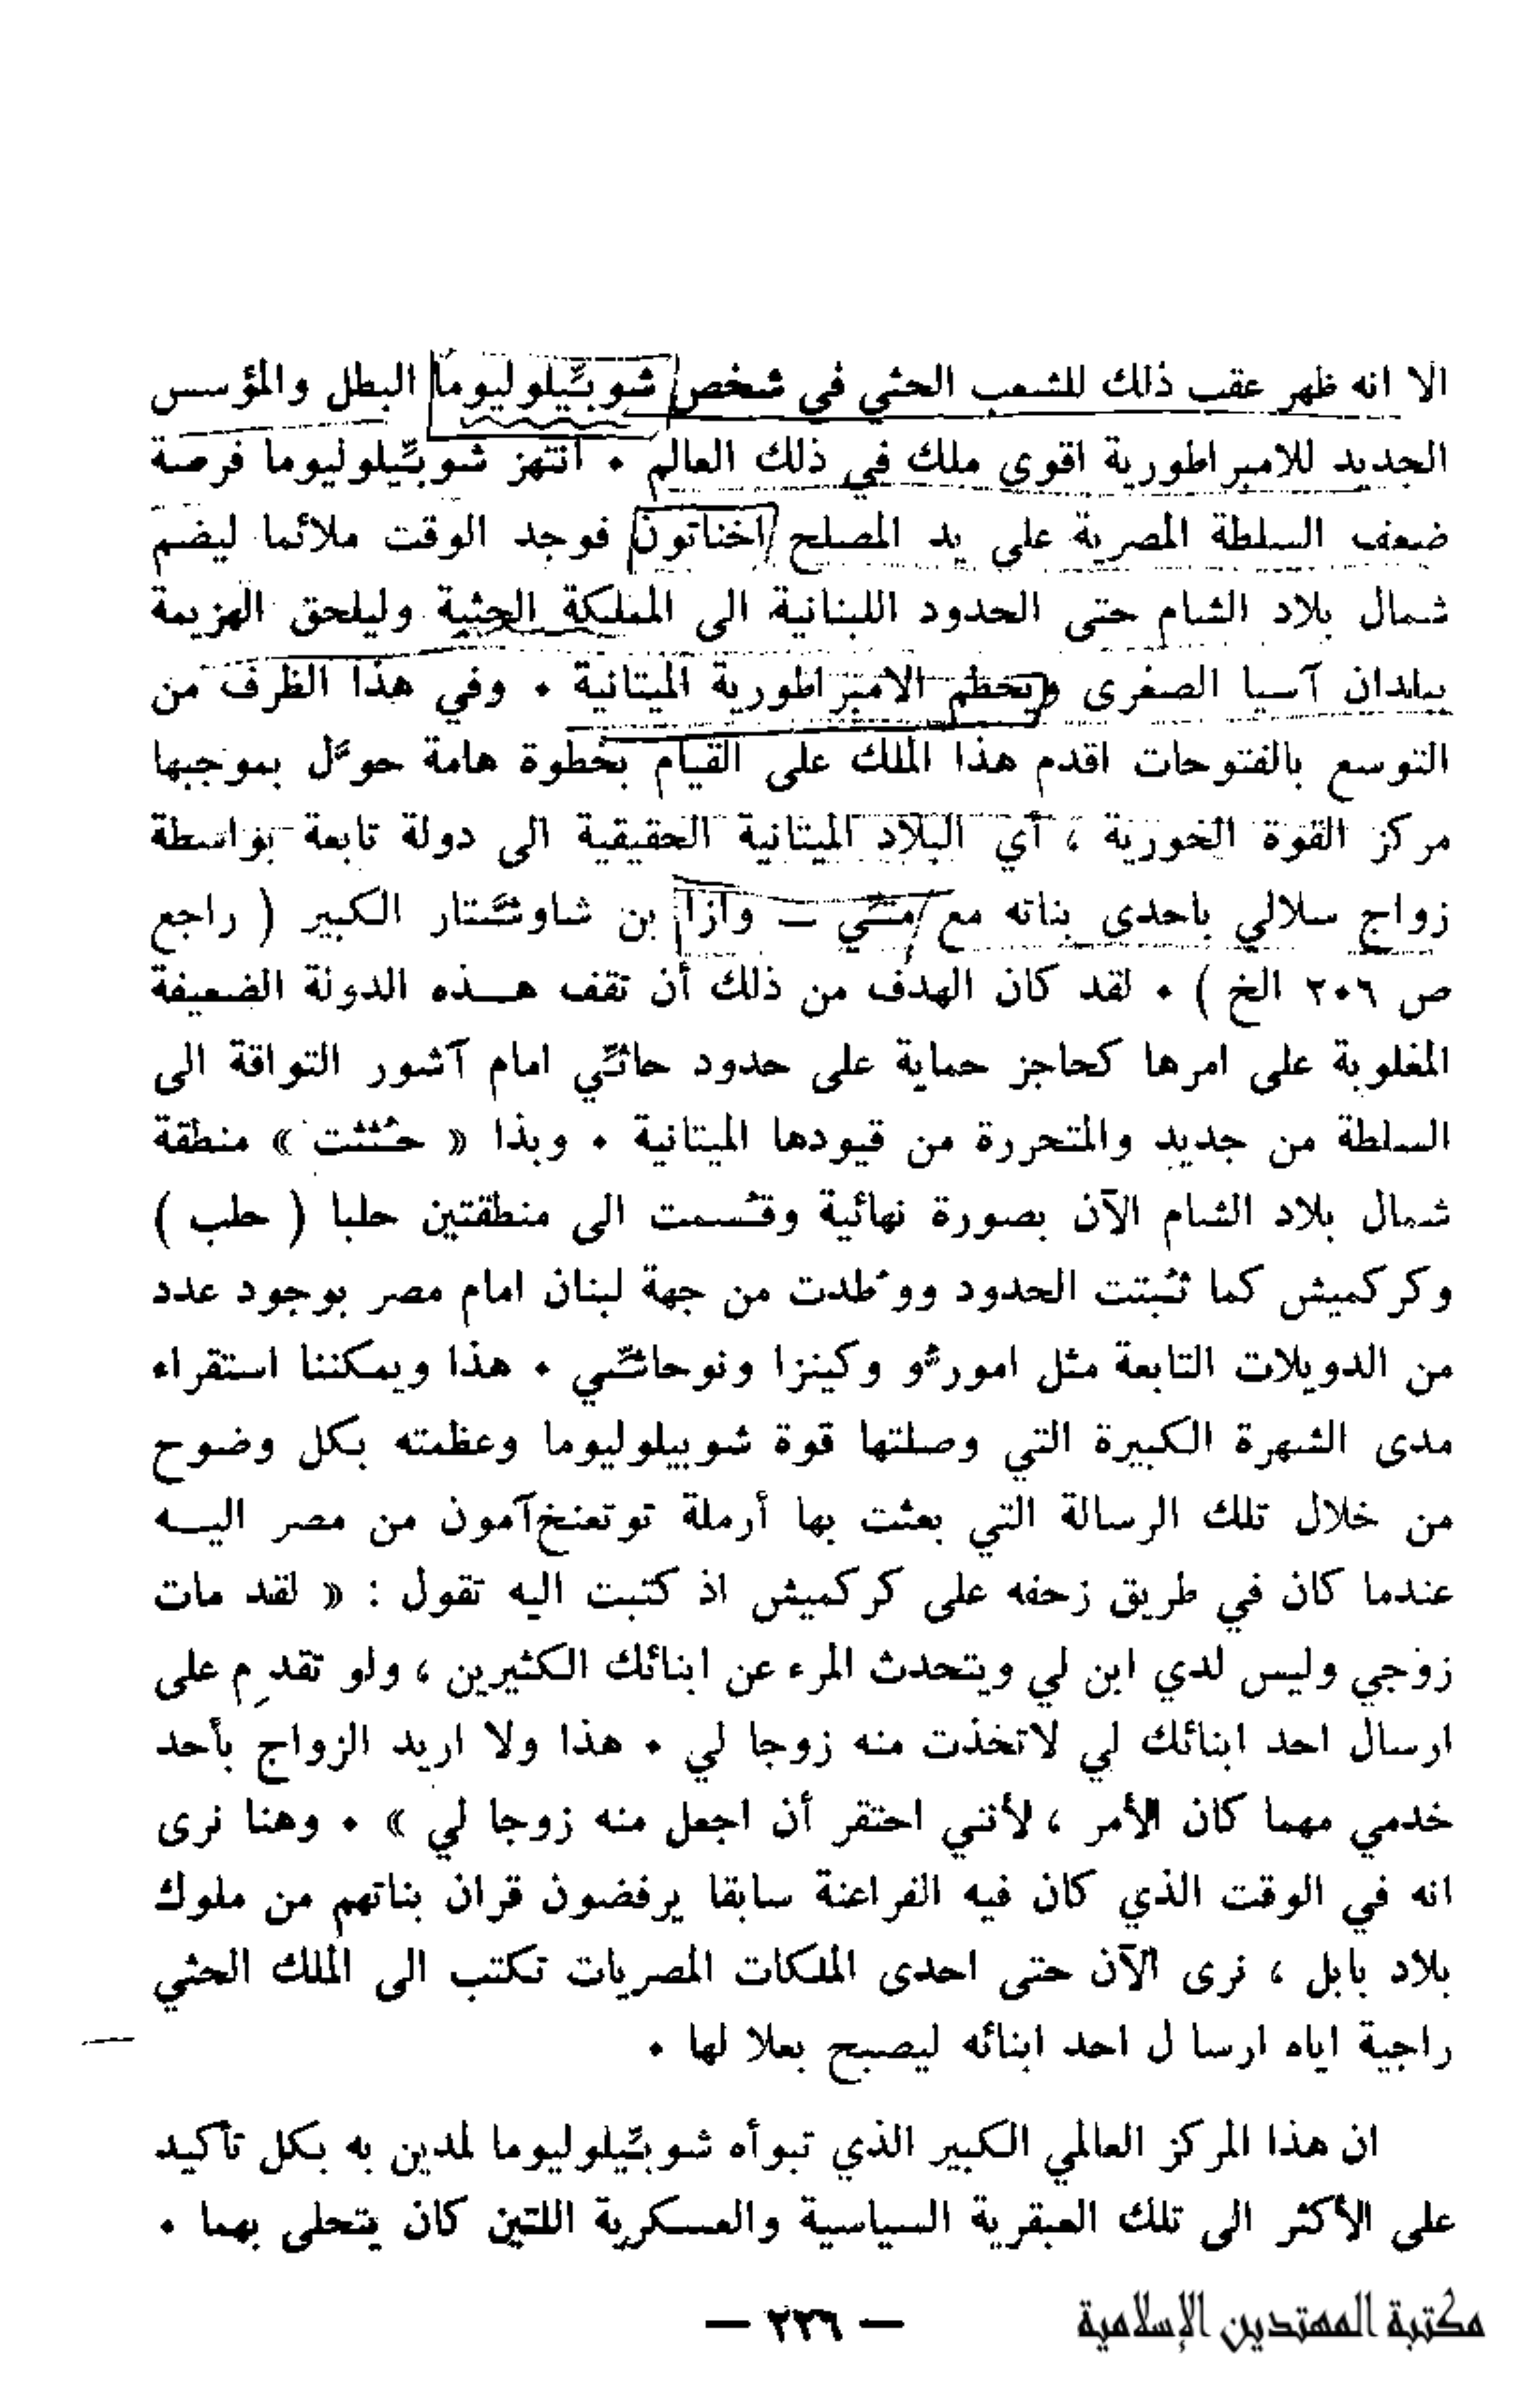 الا انه ظهر عقب ذلك للشعب الحثي في شخص شوبِّيلوليوما البطل والمؤسس
الجديد للامبراطورية اقوى ملك في ذلك العالم . انتهز شوبِّيلوليوما فرصة
ضعف السلطة المصرية على يد المصلح اخناتون فوجد الوقت ملائما ليضم
شمال بلاد الشام حتى الحدود اللبنانية الى المملكة الحثية وليلحق الهزيمة
ببلدان آسيا الصغرى ويحطم الامبراطورية الميتانية . وفي هذا الظرف من
التوسع بالفتوحات اقدم هذا الملك على القيام بخطوة هامة حوَّل بموجبها
مركز القوة الخورية ، أي البلاد الميتانية الحقيقية الى دولة تابعة بواسطة
زواج سلالي باحدى بناته مع متّي ــ وازا بن شاوشتّتار الكبير ( راجع
ص ٢٠٦ الخ ) . لقد كان الهدف من ذلك أن تقف هــذه الدولة الضعيفة
المغلوبة على امرها كحاجز حماية على حدود حاتّي امام آشور التواقة الى
السلطة من جديد والمتحررة من قيودها الميتانية . وبذا « حُثثت » منطقة
شمال بلاد الشام الآن بصورة نهائية وقُسمت الى منطقتين حلبا ( حلب )
وكركميش كما ثُبتت الحدود ووُطدت من جهة لبنان امام مصر بوجود عدد
من الدويلات التابعة مثل امورّو وكينزا ونوحاشّي . هذا ويمكننا استقراء
مدى الشهرة الكبيرة التي وصلتها قوة شوبيلوليوما وعظمته بكل وضوح
من خلال تلك الرسالة التي بعثت بها أرملة توتعنخ‌آمون من مصر اليــه
عندما كان في طريق زحفه على كركميش اذ كتبت اليه تقول : « لقد مات
زوجي وليس لدي ابن لي ويتحدث المرء عن ابنائك الكثيرين ، ولو تقدِم على
ارسال احد ابنائك لي لاتخذت منه زوجا لي . هذا ولا اريد الزواج بأحد
خدمي مهما كان الأمر ، لأنني احتقر أن اجعل منه زوجا لي » . وهنا نرى
انه في الوقت الذي كان فيه الفراعنة سابقا يرفضون قران بناتهم من ملوك
بلاد بابل ، نرى الآن حتى احدى الملكات المصريات تكتب الى الملك الحثي
راجية اياه ارسا ل احد ابنائه ليصبح بعلا لها .
ان هذا المركز العالمي الكبير الذي تبوأه شوبِّيلوليوما لمدين به بكل تأكيد
على الأكثر الى تلك العبقرية السياسية والعسكرية اللتين كان يتحلى بهما .
— ٢٢٦ —
مكتبة المهتدين الإسلامية